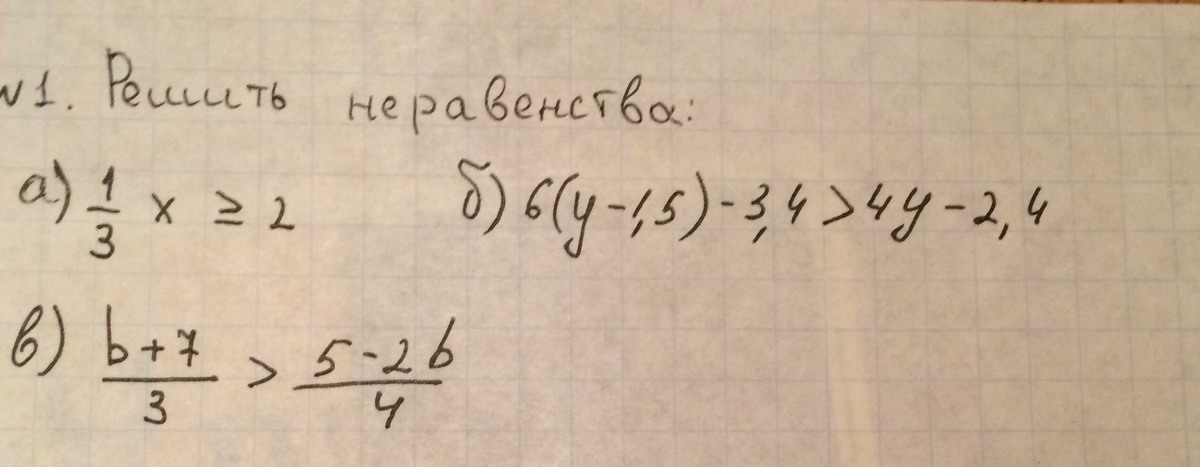 №1. Решить неравенства:
а) 1/3 x ≥ 2 б) 6(y-1,5)-3,4>4y-2,4
в) b+7/3 > 5-2b/4